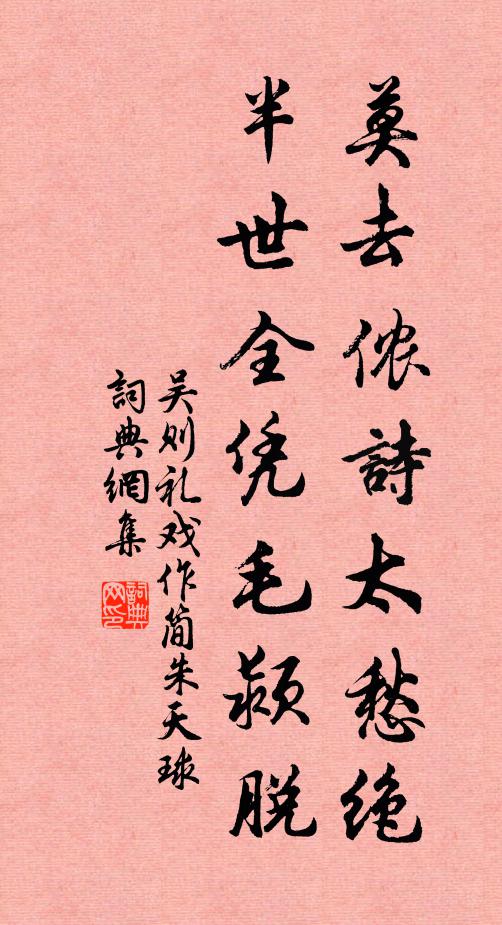 莫去侬詩太愁绝
半世全凭毛颖脱
吴则礼戏作简朱天球
詞典網集
詞典网印